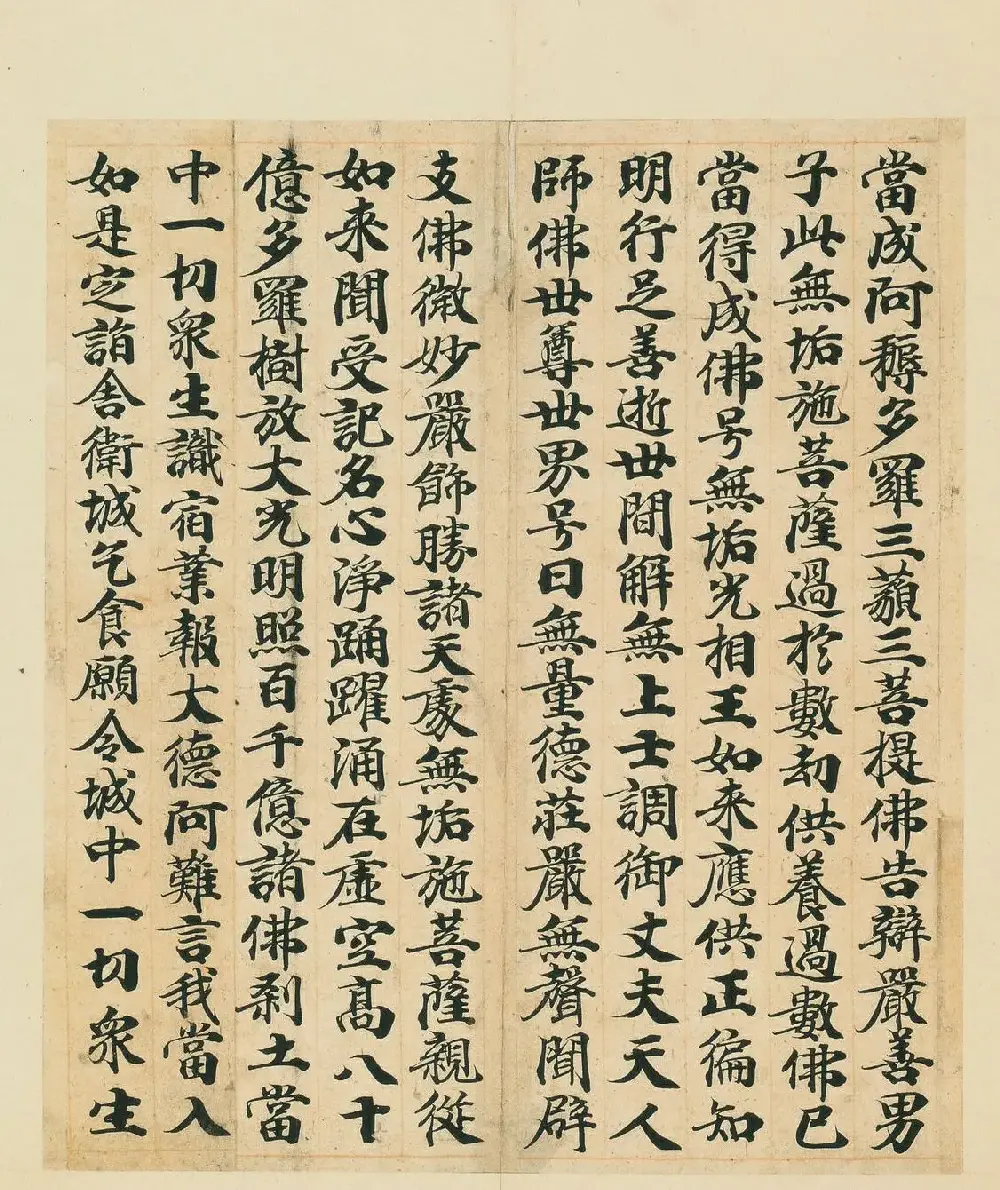 當成阿耨多羅三藐三菩提佛告辯嚴善男
子此無垢施菩薩過於數劫供養過數佛已
當得成佛号無垢光相王如来應供正徧知
明行足善逝世間解無上士調御丈夫天人
師佛世尊世界号曰無量德莊嚴無聲聞辟
支佛微妙嚴飾勝諸天處無垢施菩薩親從
如来聞受記名心淨踊躍涌在虛空高八十
億多羅樹放大光明照百千億諸佛刹土當
中一切衆生識宿業報大德阿難言我當入
如是定詣舍衛城乞食願令城中一切衆生